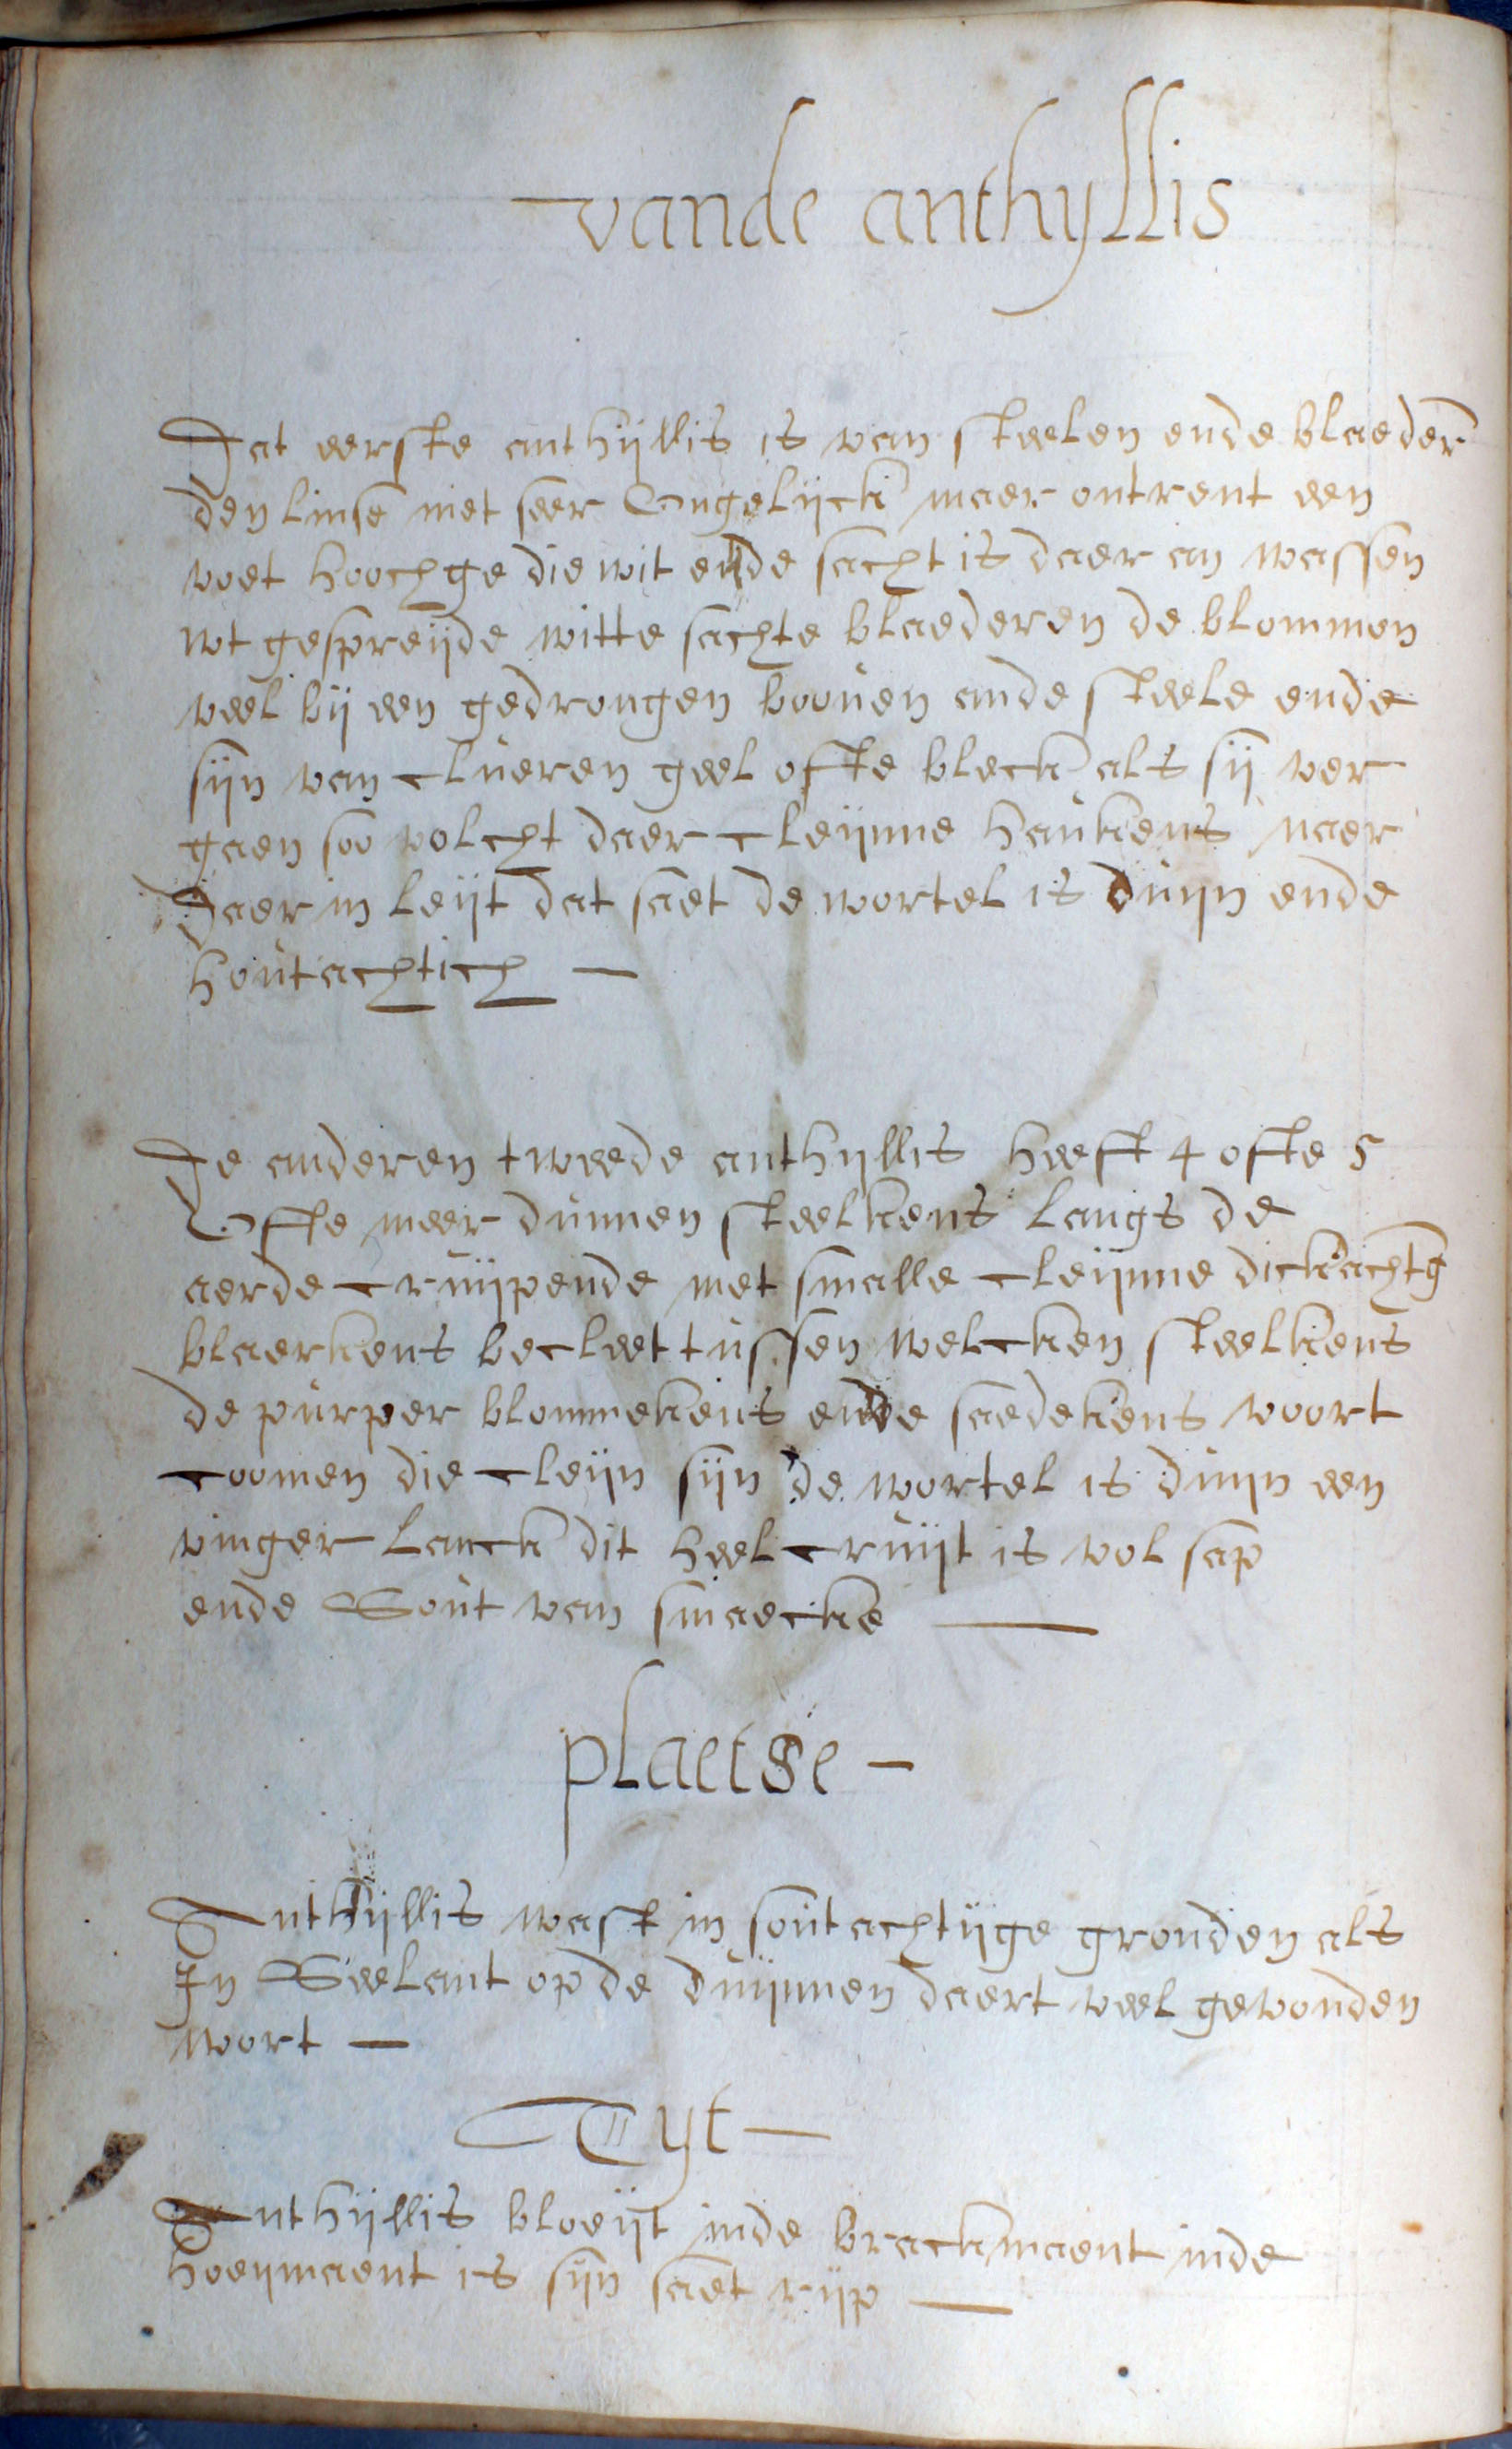 vande anthyllis
Dat eerste anthijllis is van steelen ende blaeder
den linse niet seer Ongelijck maer ontrent een
voet hoochge die wit ende sacht is daer an wassen
wt gespreijde witte sachte blaederen de blommen
veel bij een gedrongen booven ande steele ende
sijn van clueren geel ofte bleck als sij ver
gaen soo volcht daer cleijnne haukens naer
Daer in leijt dat saet de wortel is duijn ende
houtachtich —
De anderen tweede anthyllis heeft 4 ofte 5
Offte meer dunnen steelkens langs de
aerde cruijpende met smalle cleijnne dickachtg
blaerkens becleet tussen welcken steelkens
de purper blommekens ende saedekens voort
coomen die cleijn sijn de wortel is duijn een
vinger lanck dit heel cruijt is vol sap
ende Sout van smaecke —
plaetse —
Anthijllis wast in soutachtijge gronden als
In Seelant op de duijnnen daert veel gevonden
wort —
Tyt —
Anthijllis bloeijt inde brackmaent inde
hoeijmaent is sijn saet rijp —